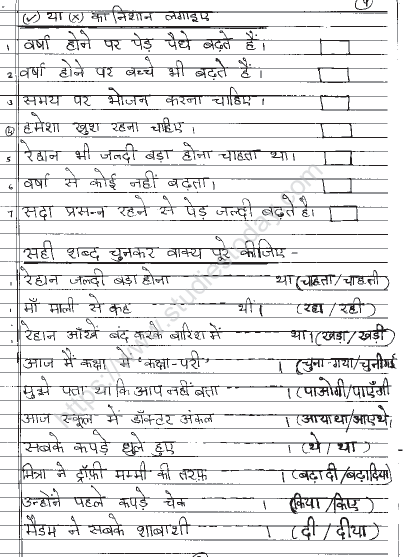 (✓) या (×) का निशान लगाइए
1 वर्षा होने पर पेड़ पौधे बढ़ते हैं।
2 वर्षा होने पर बच्चे भी बढ़ते हैं।
3 समय पर भोजन करना चाहिए।
4 हमेशा खुश रहना चाहिए।
5 रेहान भी जल्दी बड़ा होना चाहता था।
6 वर्षा से कोई नहीं बढ़ता।
7 सदा प्रसन्न रहने से पेड़ जल्दी बढ़ते हैं।
सही शब्द चुनकर वाक्य पूरे कीजिए -
रेहान जल्दी बड़ा होना ------- था (चाहता/चाहती)
माँ माली से कह ------- थीं। (रहा/रही)
रेहान आँखें बंद करके बारिश में ------- था। (खड़ा/खड़ी)
आज मैं कक्षा में 'कक्षा-परी' ------- । (चुना-गया/चुनी गई
मुझे पता था कि आप नहीं बता ------- । (पाओगी/पाएँगी
आज स्कूल में डॉक्टर अंकल ------- । (आया था/आए थे)
सबके कपड़े धुले हुए ------- । (थे/था)
मित्रा ने ट्रॉफी मम्मी की तरफ़ ------- । (बढ़ा दी/बढ़ा दिया)
उन्होंने पहले कपड़े चेक ------- । (किया/किए)
मैडम ने सबके शाबाशी ------- । (दी/दीया)
https://www.studiestoday.com